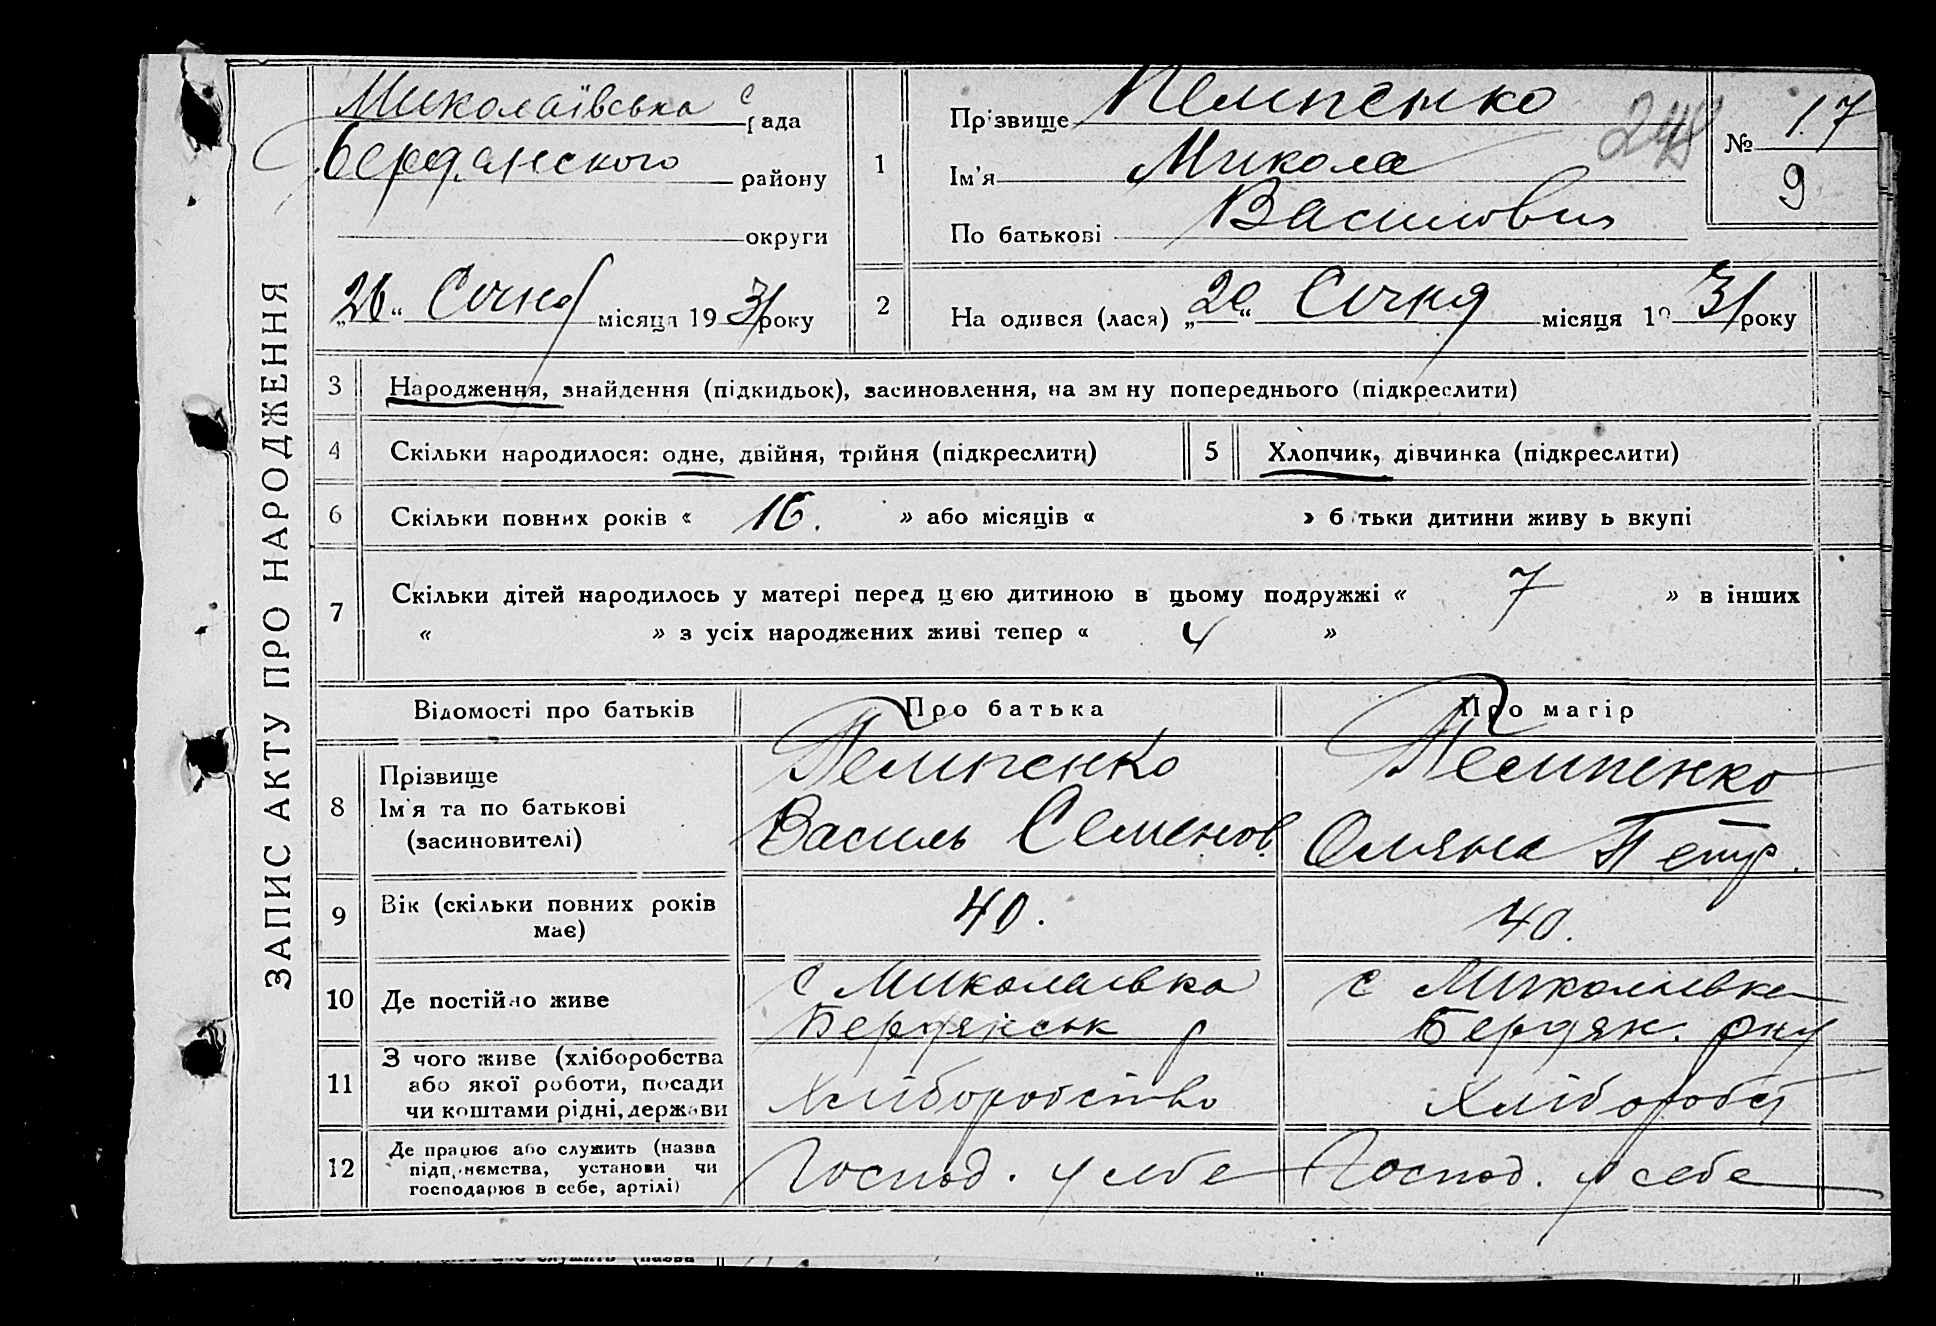 ЗАПИС АКТУ ПРО НАРОДЖЕННЯ
Миколаївська с рада
Бердянского району
округи
„26“ Січня місяця 1931 року
1
Прізвище Пелипенко
Ім'я Микола
По батькові Василович
248
№ 17
9
2
На одився (лася) „20“ Січня місяця 19 31 року
3 Народження, знайдення (підкидьок), засиновлення, на зм ну попереднього (підкреслити)
4 Скільки народилося: одне, двійня, трійня (підкреслити)
5 Хлопчик, дівчинка (підкреслити)
6 Скільки повних років « 16. » або місяців « » б тьки дитини живу ь вкупі
7 Скільки дітей народилось у матері перед цією дитиною в цьому подружжі « 7 » в інших
« » з усіх народжених живі тепер « 4 »
Відомості про батьків Про батька Про матір
8 Прізвище
Ім'я та по батькові
(засиновителі)
Пелипенко
Василь Семенов.
Пелипенко
Оляна Петр.
9 Вік (скільки повних років
має)
40.
40.
10 Де постійно живе
с Миколаівка
Бердянськ р
с Миколаівка
Бердян. рну
11 З чого живе (хліборобства
або якої роботи, посади
чи коштами рідні, держави
Хліборобство
Хлібороб
12 Де працює або служить (назва
підп,иємства, установи чи
господарює в себе, артілі)
Господ. у себе
Господ. у себе